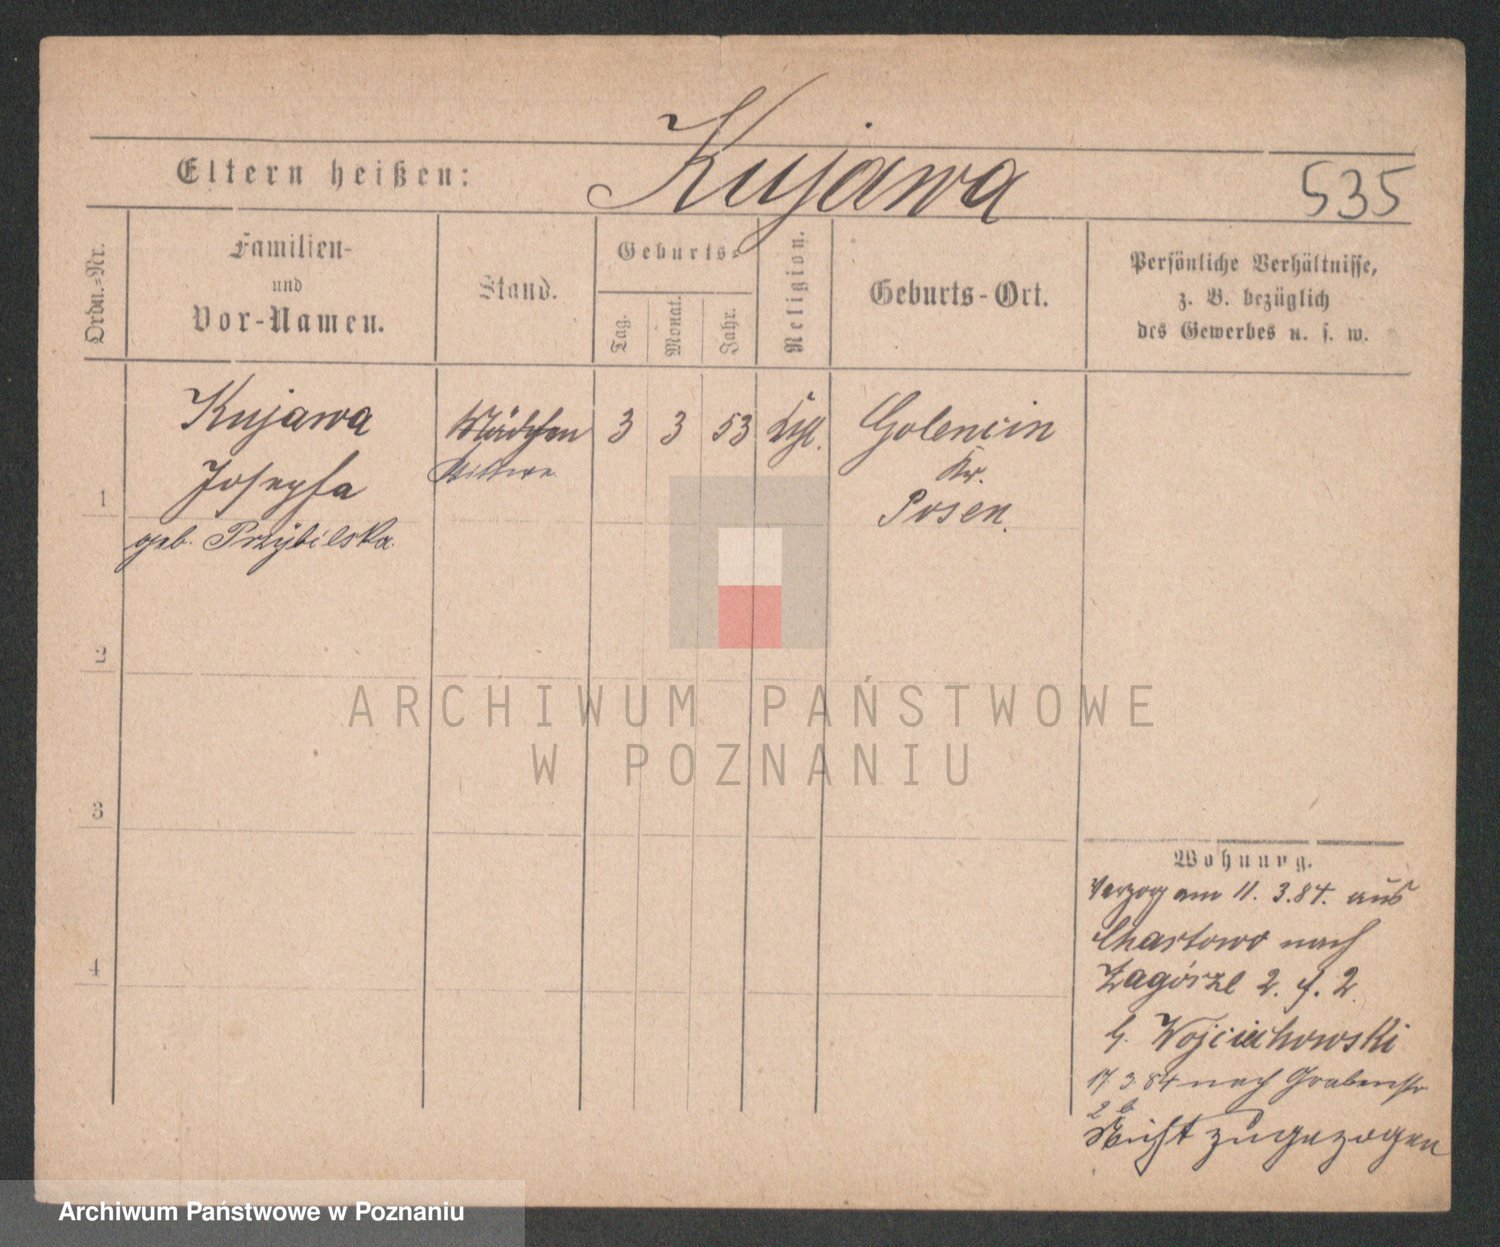 Kujawa
Eltern heißen:
535
Ordn.=Nr.
Familien-
und
Vor-Namen.
Stand.
Geburts=
Tag.
Monat.
Jahr.
Religion.
Geburts-Ort.
Persönliche Verhältnisse,
z. B. bezüglich
des Gewerbes u. s. w.
1
Kujawa
Josepha
geb. Przybilska.
Mädchen
Wittwe
3
3
53
Golencin
Kr.
Posen.
2
3
4
Wohnung.
Verzog am 11. 3. 84. aus
Chartowo nach
Zagórze 2. f. 2.
b. Wojciechowski
17 3 84 nach Grabenstr
2 b
Nicht zugezogen
ARCHIWUM PAŃSTWOWE
W POZNANIU
Archiwum Państwowe w Poznaniu